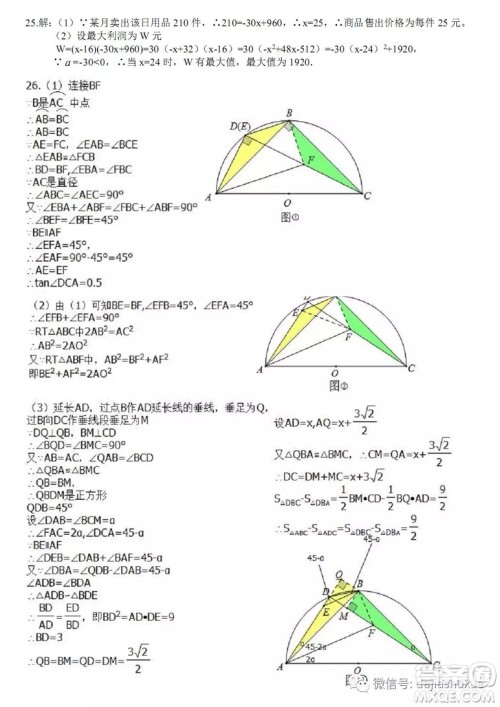 25.解：（1）∵某月卖出该日用品 210 件，∴210=-30x+960，∴x=25，∴商品售出价格为每件 25 元。
（2）设最大利润为 W 元
W=(x-16)(-30x+960)=30(-x+32)(x-16)=30(-x²+48x-512)=-30(x-24)²+1920，
∵a=-30<0，∴当 x=24 时，W 有最大值，最大值为 1920.
26.（1）连接BF
∵B是AC 中点
∴AB=BC
∴AB=BC
∵AE=FC，∠EAB=∠BCE
∴△EAB≌△FCB
∴BD=BF,∠EBA=∠FBC
∵AC是直径
∴∠ABC=∠AEC=90°
又∵∠EBA+∠ABF=∠FBC+∠ABF=90°
∴∠BEF=∠BFE=45°
∵BE∥AF
∴∠EFA=45°,
∴∠EAF=90°-45°=45°
∴AE=EF
∴tan∠DCA=0.5
D(E)
B
F
A
O
C
图①
（2）由（1）可知BE=BF,∠EFB=45°，∠EFA=45°
∴∠EFB+∠EFA=90°
又∵RT△ABC中2AB²=AC²
∴AB²=2AO²
又∵RT△ABF中，AB²=BF²+AF²
即BE²+AF²=2AO²
E
F
A
O
C
图②
（3）延长AD，过点B作AD延长线的垂线，垂足为Q，
过B向DC作垂线段垂足为M
∵DQ⊥QB，BM⊥CD
∴∠BQD=∠BMC=90°
又∵AB=BC，∠QAB=∠BCM
∴△QBA≌△BMC
∴QB=BM
∴QBDM是正方形
QDB=45°
设∠DAB=∠BCM=α
∴∠FAC=2α,∠DCA=45-α
∵BE∥AF
∴∠DEB=∠DAB+∠BAF=45-α
又∵∠DBA=∠QBA-∠QBD=45-α
∠ADB=∠BDA
∴△ADB∽△BDE
∴BD/AD=ED/BD，即BD²=AD•DE=9
∴BD=3
∴QB=BM=QD=DM=3√2/2
设AD=x,AQ=x+3√2/2
又∵△QBA≌△BMC，∴CM=QA=x+3√2/2
∴DC=DM+MC=x+3√2
S△DBC-S△DBC=1/2BM•CD-1/2BQ•AD=9/2
∴S△ABC-S△ADC=S△DBC-S△DBA=9/2
45-α
45-α
Q
D
B
E
M
F
45-2α
2α
α
A
O
C
答案圈